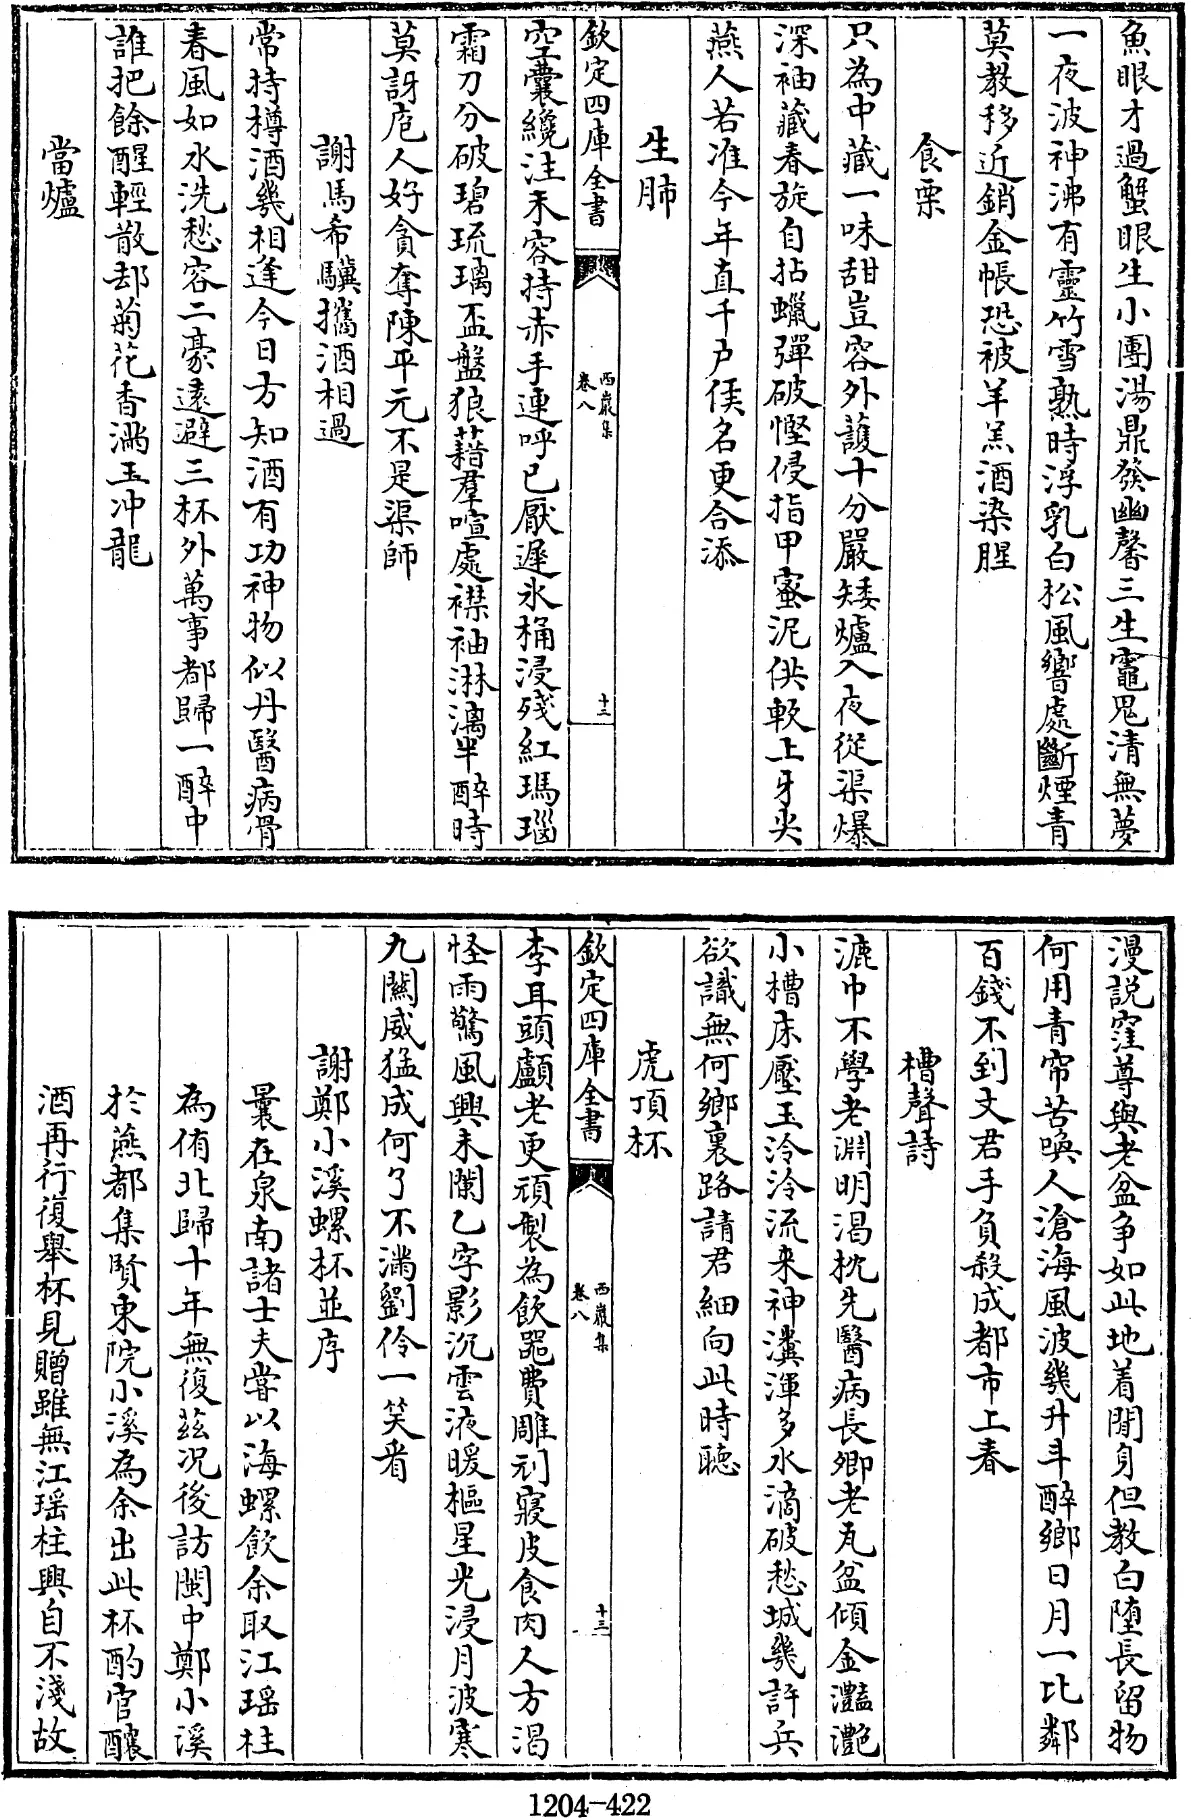 魚眼才過蟹眼生小團湯鼎發幽馨三生竈鬼清無夢
一夜波神沸有靈竹雪熟時浮乳白松風響處斷煙青
莫教移近銷金帳恐被羊羔酒染腥
食栗
只為中藏一味甜豈容外護十分嚴矮爐入夜從渠爆
深袖藏春旋自拈蠟彈破慳侵指甲蜜泥供軟上牙尖
燕人若准今年直千户侯名更合添
生肺
欽定四庫全書
西巖集
卷八
十三
空囊纔注未容持赤手連呼已厭遲氷桶浸殘紅瑪瑙
霜刀分破碧琉璃盃盤狼藉羣喧處襟袖淋漓半醉時
莫訝庖人好貪奪陳平元不是渠師
謝馬希驥攜酒相過
常持樽酒幾相逢今日方知酒有功神物似丹醫病骨
春風如水洗愁容二豪遠避三杯外萬事都歸一醉中
誰把餘酲輕散却菊花香滿玉沖龍
當爐
漫説窪尊與老盆争如此地着閒身但教白墮長留物
何用青帘苦喚人滄海風波幾升斗醉鄉日月一比鄰
百錢不到文君手負殺成都市上春
槽聲詩
漉巾不學老淵明渴枕先醫病長卿老瓦盆傾金灔灔
小槽床壓玉泠泠流來神瀵渾多水滴破愁城幾許兵
欲識無何鄉裏路請君細向此時聽
虎頂杯
欽定四庫全書
西巖集
卷八
十三
李耳頭顱老更頑製為飲器費雕刓寢皮食肉人方渴
怪雨驚風興未闌乙字影沉雲液暖樞星光浸月波寒
九關威猛成何了不滿劉伶一笑看
謝鄭小溪螺杯並序
曩在泉南諸士夫嘗以海螺飲余取江瑶柱
為侑北歸十年無復兹况後訪閩中鄭小溪
於燕都集賢東院小溪為余出此杯酌官釀
酒再行復舉杯見贈雖無江瑶柱興自不淺故
1204-422